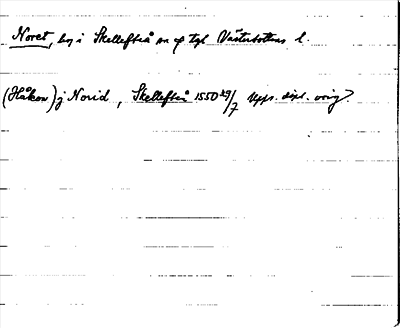 Noret, by i Skellefteå sn o tgl Västerbottens l.
(Håkon) j Norid, Skellefteå 1550 29/7 Upps. dipl. orig.